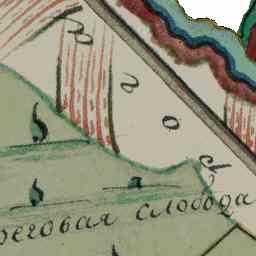 г о р
реговая слобода